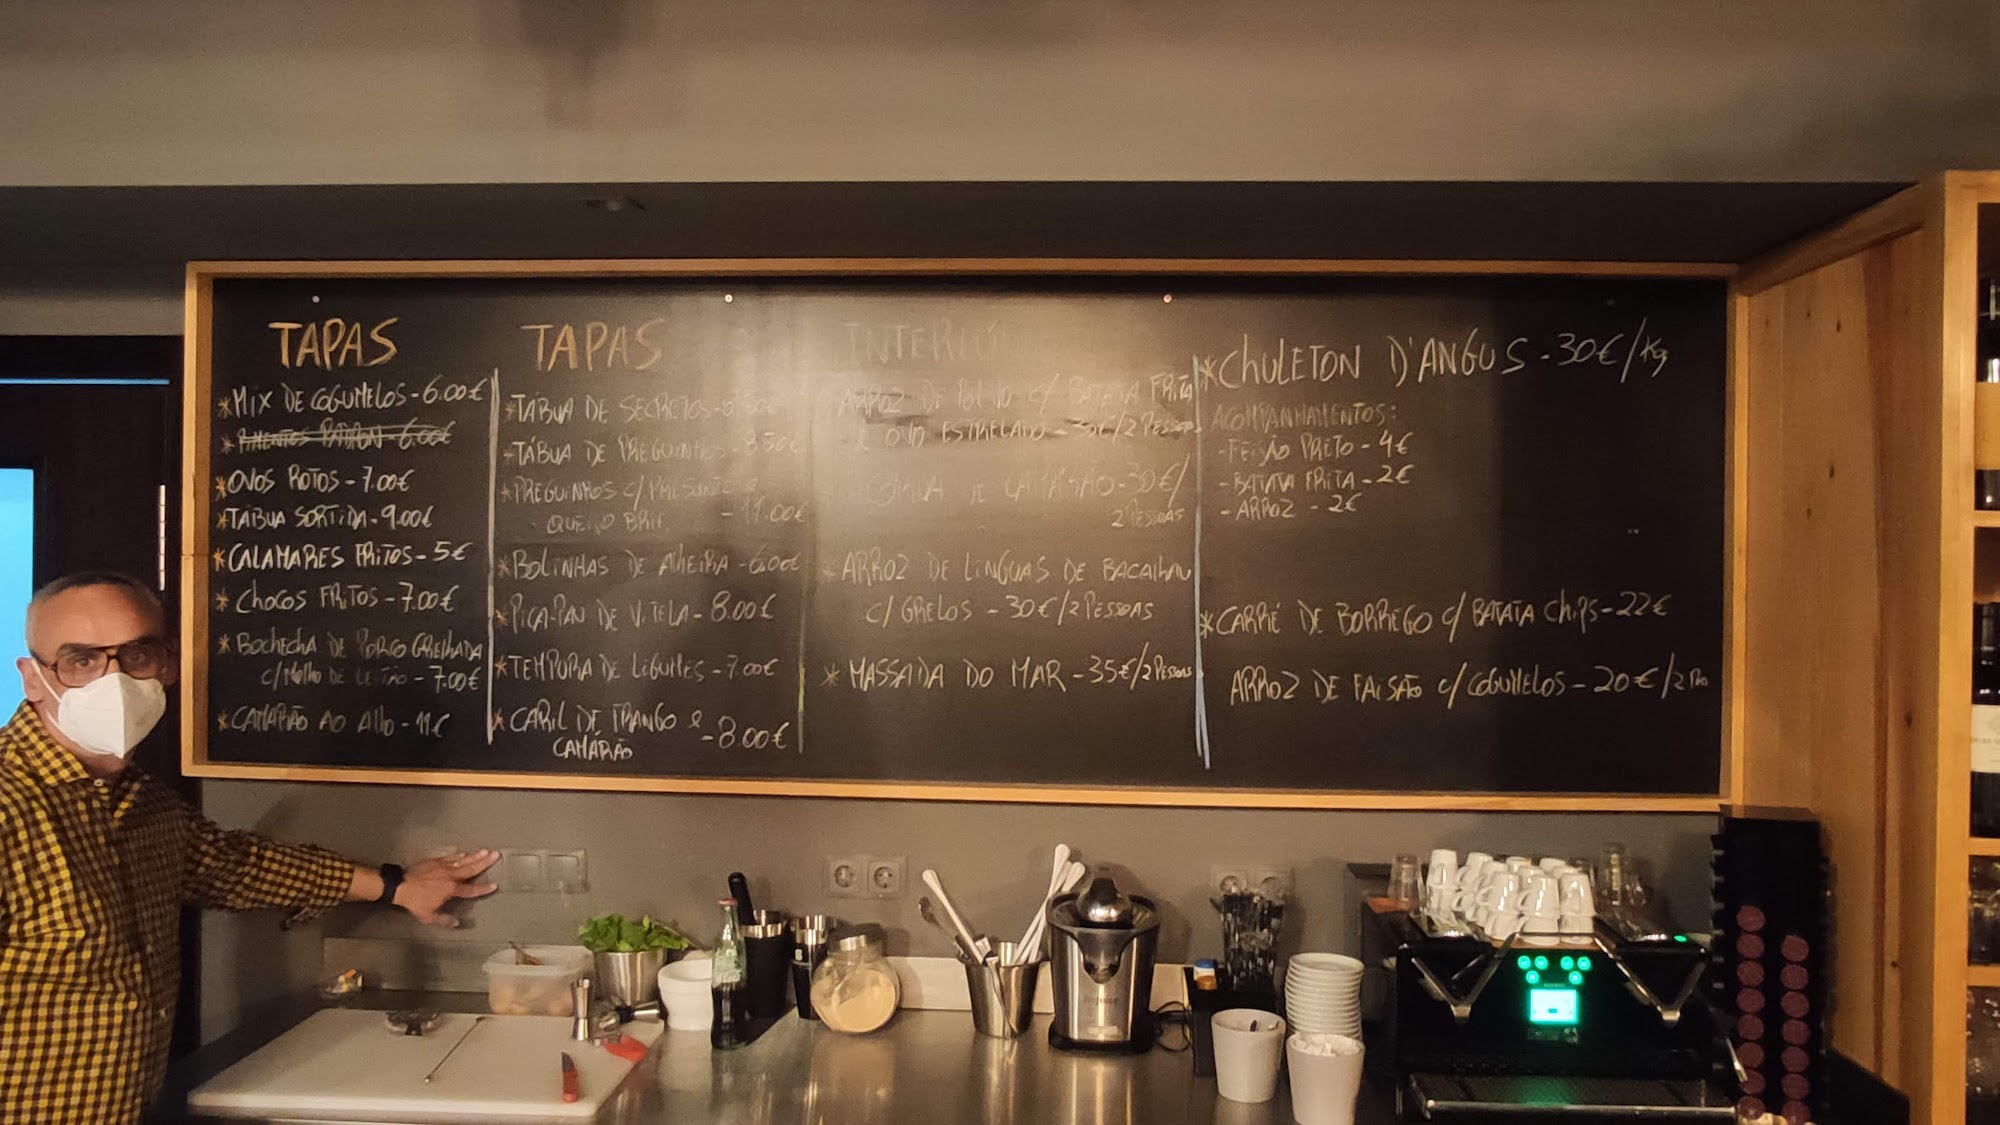 TAPAS
*MIX DE COGUMELOS - 6.00€
*PIMENTOS PADRON - 6.00€
*OVOS ROTOS - 7.00€
*TÁBUA SORTIDA - 9.00€
*CALAMARES FRITOS - 5€
*CHOCOS FRITOS - 7.00€
*BOCHECHA DE PORCO GRELHADA
C/MOLHO DE LEITÃO - 7.00€
*CAMARÃO AO ALHO - 11€
TAPAS
*TÁBUA DE SECRETOS -
-TÁBUA DE PREGUINHOS - 8.50€
*PREGUINHOS C/PRESUNTO E
QUEIJO BRIE - 11.00€
*BOLINHAS DE ALHEIRA - 6.00€
*PICA-PAU DE VITELA - 8.00€
*TEMPURA DE LEGUMES - 7.00€
*CARIL DE FRANGO E
CAMARÃO - 8.00€
ARROZ DE POLVO C/ BATATA FRITA
E OVO ESTRELADO - 30€/2 PESSOAS
DE CAMARÃO - 30€/
2 PESSOAS
*ARROZ DE LINGUAS DE BACALHAU
C/ GRELOS - 30€/2 PESSOAS
*MASSADA DO MAR - 35€/2 PESSOAS
*CHULETON D'ANGUS - 30€/Kg
ACOMPANHAMENTOS:
-FEIJÃO PRETO - 4€
-BATATA FRITA - 2€
-ARROZ - 2€
*CARRÉ DE BORREGO C/ BATATA CHIPS - 22€
ARROZ DE FAISÃO C/COGUMELOS - 20€/2